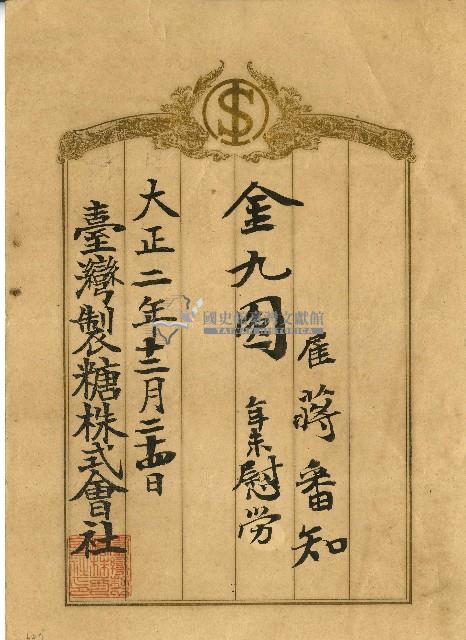 雇 蔣番知
金九圓 年末慰労
大正二年十二月二十四日
臺灣製糖株式會社
國史館臺灣文獻館